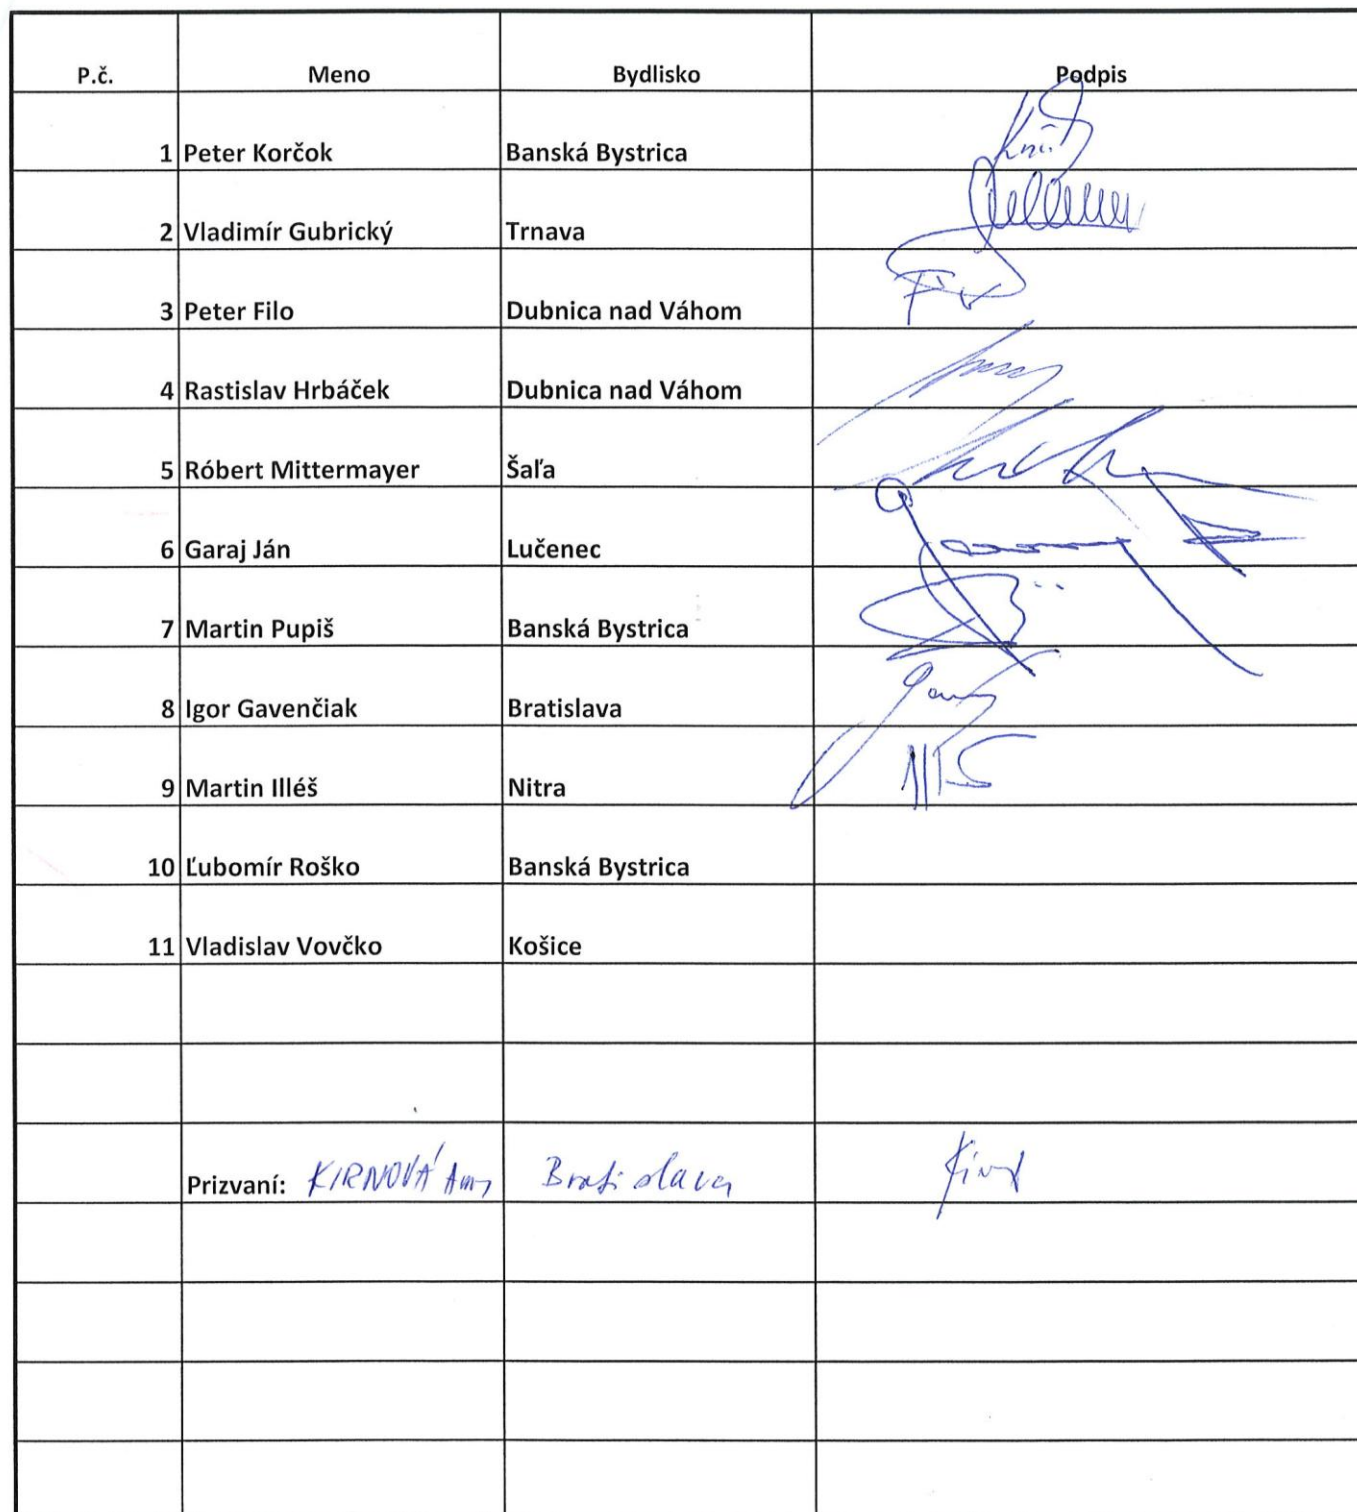 P.č. Meno Bydlisko Podpis
1 Peter Korčok Banská Bystrica
2 Vladimír Gubrický Trnava
3 Peter Filo Dubnica nad Váhom
4 Rastislav Hrbáček Dubnica nad Váhom
5 Róbert Mittermayer Šaľa
6 Garaj Ján Lučenec
7 Martin Pupiš Banská Bystrica
8 Igor Gavenčiak Bratislava
9 Martin Illéš Nitra
10 Ľubomír Roško Banská Bystrica
11 Vladislav Vovčko Košice
Prizvaní: KIRNOVÁ Bratislava